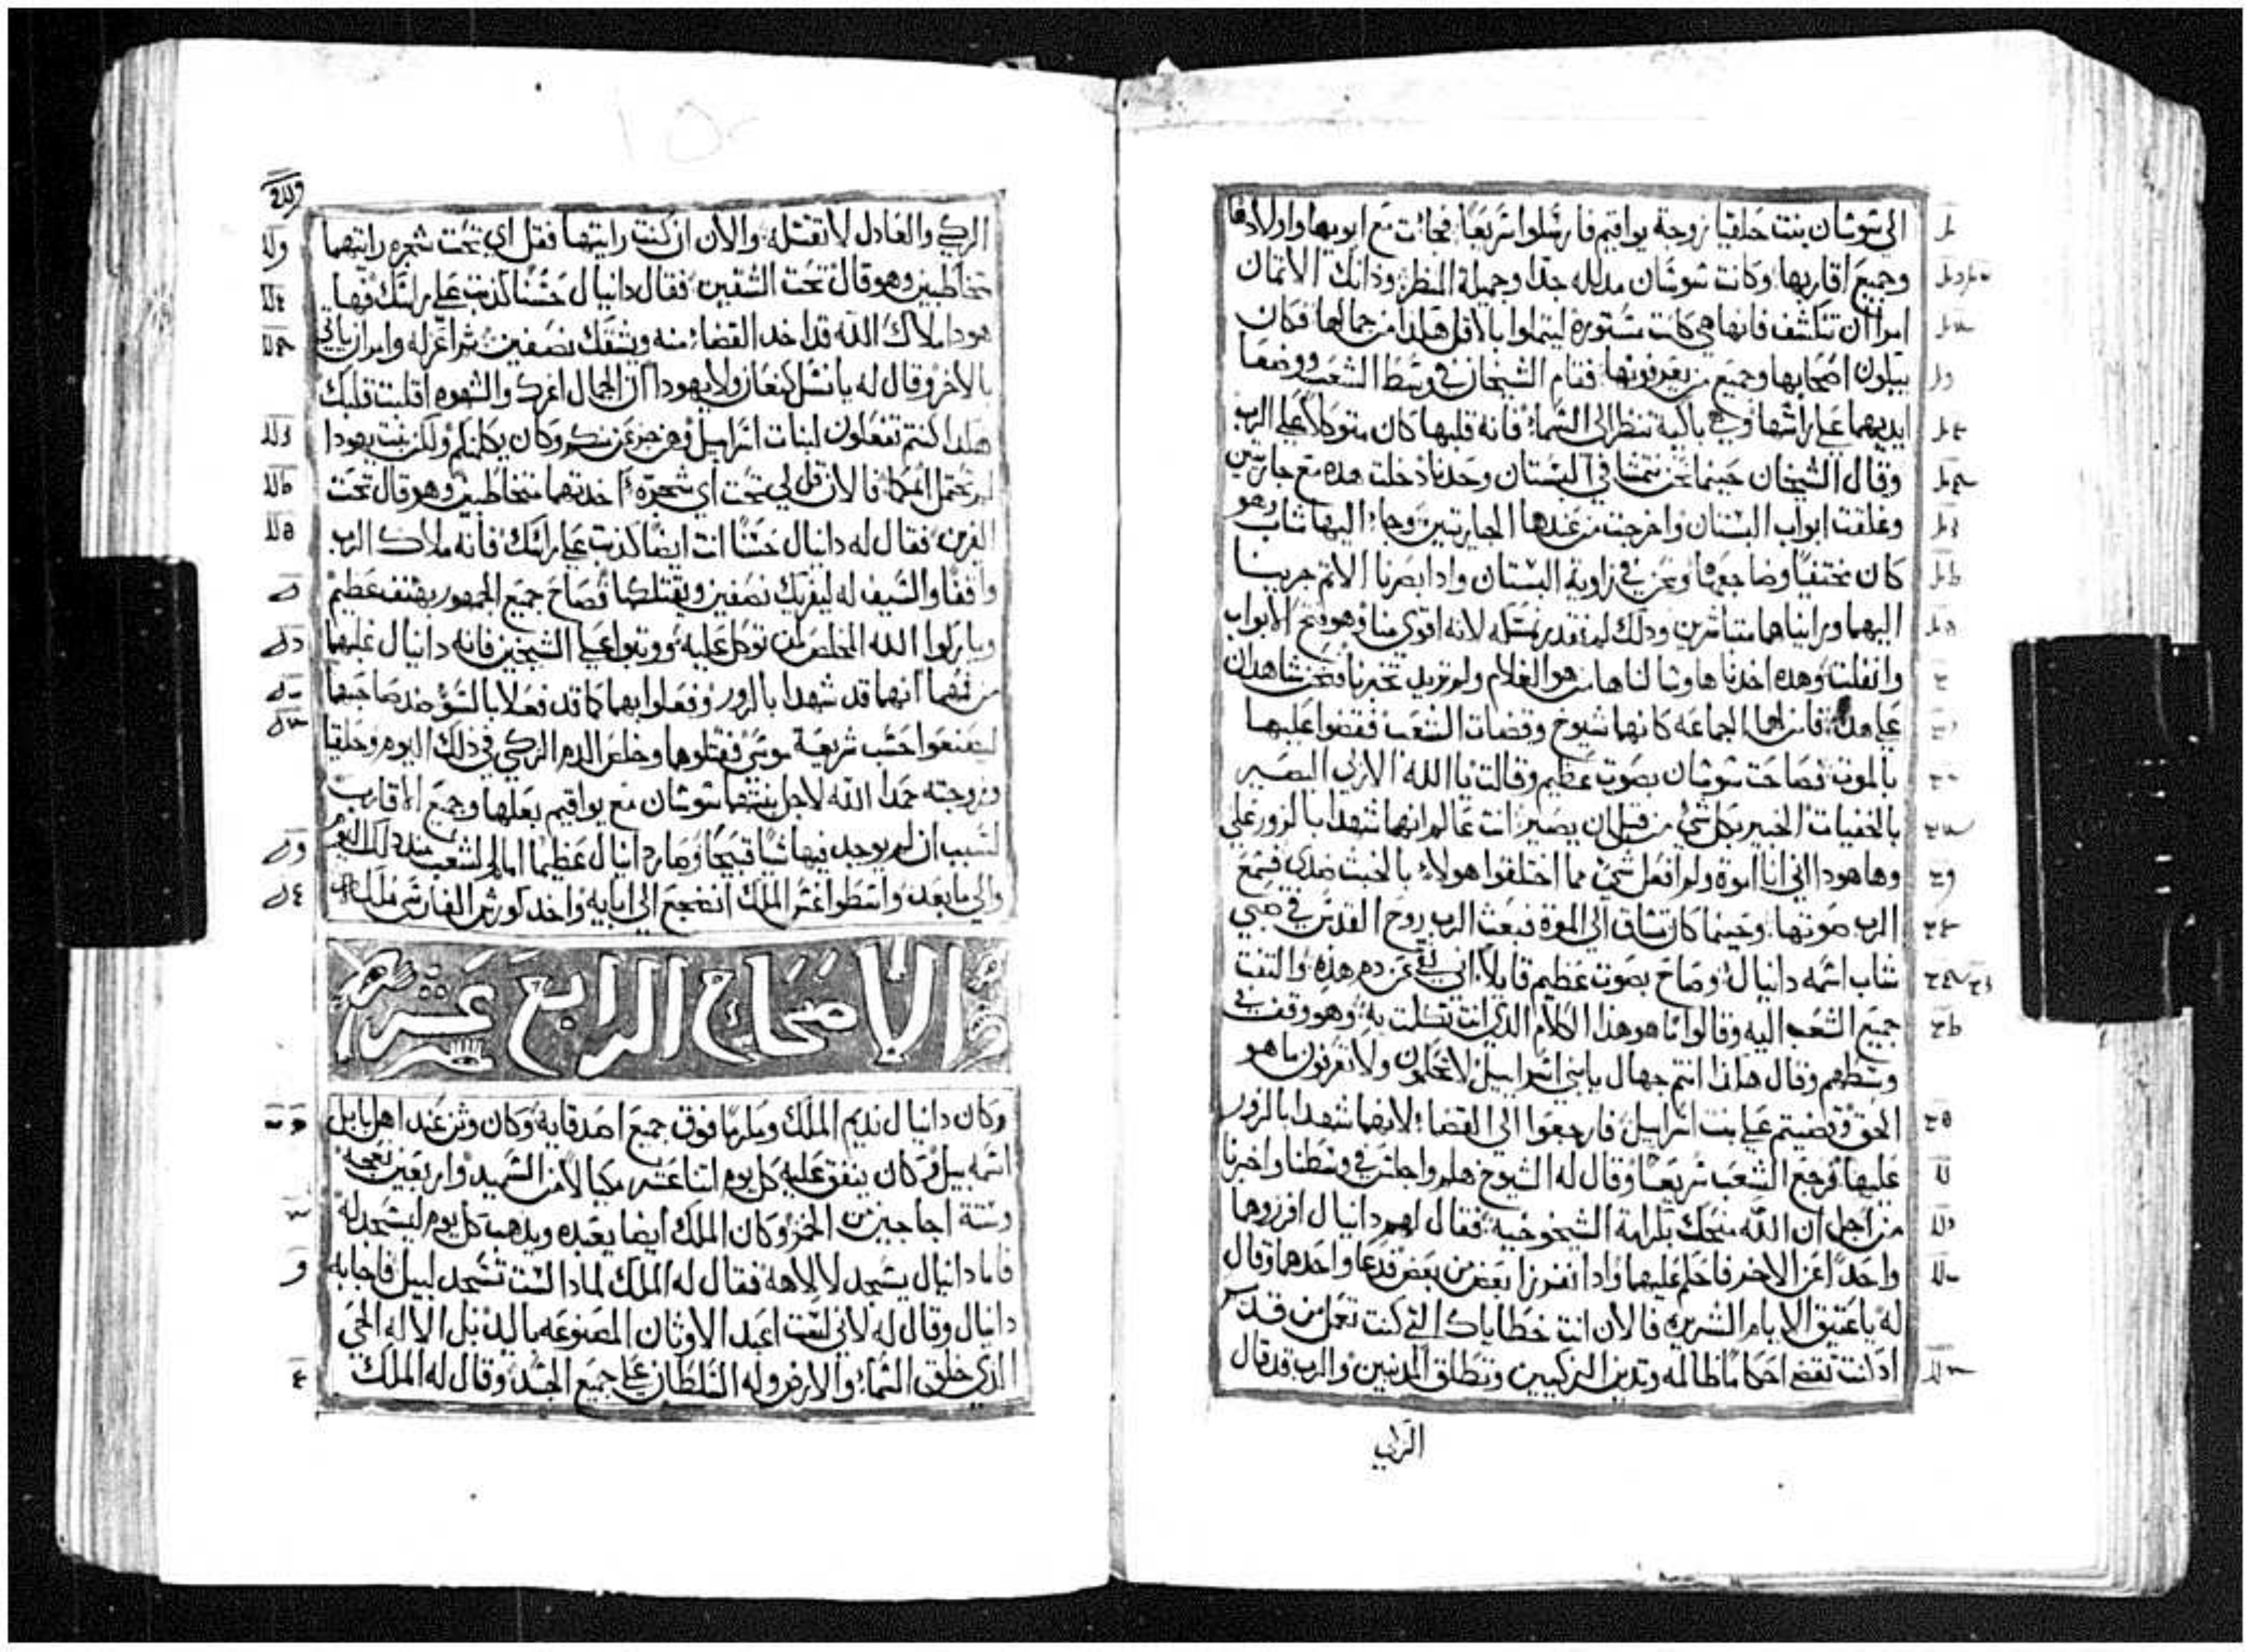 الي شوشان بنت حلقيا زوجة يواقيم فارسلوا سريعا فجائت مع ابويها واولادها
وجميع اقاربها وكانت شوشان مدلله جدا وجميلة المنظر وذانك الاثمان
امرا ان تنكشف فانها هي كانت مستورة ليتملوا بالاقل هكذا من جمالها فكان
يبكون اصحابها وجميع من يعرفونها فقام الشيخان في وسط الشعب ووضعا
ايديهما على راسها وهي باكية تنظر الى السماء فانه قلبها كان متوكلا على الرب
وقال الشيخان حينما نحن نتمشا في البستان وحدنا دخلت هذه مع جاريتين
وغلقت ابواب البستان واخرجت من عندها الجاريتين وجاء اليها شاب وهو
كان مختفيا وضاجعها ونحن في زاوية البستان واذ ابصرنا الاثم جرينا
اليهما ورايناهما متناشرين وذلك لم نقدر نمسكه لانه اقوي منا وهو فتح الابواب
وانفلت وهذه اخذناها وسالناها من هو الغلام ولم تريد تخبرنا فنحن شاهدان
على هذا الجماعه كانهما شيوخ وقضات الشعب فقضوا عليها
بالموت فصاحت شوشان بصوت عظيم وقالت يا الله الازلي البصير
بالخفيات الخبير بكل شي من قبل ان يصير انت عالم انهما شهدا بالزور علي
وها هودا اني انا اموة ولم افعل شي مما اختلقوا هولاء بالخبث ضدي فسمع
الرب صوتها وحينما كان تساق الى الموة فبعث الرب روح القدس في صبي
شاب اسمه دانيال وصاح بصوت عظيم قايلا اني نقي من دم هذه والتفت
جميع الشعب اليه وقالوا ما هو هذا الكلام الذي انت تكلمت به وهو وقف في
وسطهم وقال هكذا انتم جهال يابني اسراييل لا تحكمون ولا تعرفون ما هو
الحق وقضيتم على بنت اسراييل فارجعوا الى القضاء لانهما شهدا بالزور
عليها فرجع الشعب سريعا وقال له الشيوخ هلم واجلس في وسطنا واخبرنا
من اجل ان الله منحك كرامة الشيخوخية فقال لهم دانيال افرزوهما
واحدا عن الاخر فاحكم عليهما واذا انفرزا بعض من بعض فدعا واحدهما وقال
له يا عتيق الايام الشريره فالان اتت خطاياك التي كنت تعمل من قديم
اذ انت تقضي احكاما ظالمه وتدين الزكيين وتطلق المدنبين والرب قد قال
الزكي
الزكي والعادل لا تقتله والان ان كنت رايتها فقل اي تحت شجره رايتهما
متخاطبين وهو قال تحت الشقين فقال دانيال حسنا كذبت على راسك فها
هودا ملاك الله قد اخد القضاء منه ويشقك نصفين ثم اعزله وامر ان ياتي
بالاخر وقال له يا نسل كنعان ولا يهودا ان الجمال اغرك والشهوه اقلبت قلبك
هكدا كنتم تفعلون لبنات اسراييل وهن خوفا منكم وكان يكلمنكم ولكن بنت يهودا
لم تحتمل اثمكما فالان قل لي تحت اي شجرة اخدتهما متخاطبين وهو قال تحت
الفرين فقال له دانيال حسنا انت ايضا كذبت على راسك فانه ملاك الرب
واقفا والسيف له ليفريك نصفين ويقتلكما فصاح جميع الجمهور بهتف عظيم
وباركوا الله المخلص لمن توكل عليه ووتبوا على الشيخين فانه دانيال غلبهما
من فمهما انهما قد شهدا بالزور وفعلوا بهما كما قد فعلا بالسؤ ضد صاحبهما
ليصنعوا حسب شريعة موسى فقتلوهما وخلص الدم الزكي في ذلك اليوم وحلقيا
وزوجته حمدا الله لاجل بنتهما شوشان مع يواقيم بعلها وجميع الاقارب
لسبب ان لم يوجد فيها شيا قبيحا وصار دانيال عظيما امام الشعب مند ذلك اليوم
والي ما بعد واسطواغس الملك انضجع الي ابايه واخد كورش الفارسي ملكه
الاصحاح الرابع عشر
وكان دانيال نديم الملك ومكرما فوق جميع اصدقايه وكان وثن عند اهل بابل
اسمه بيل وكان ينفق عليه كل يوم اتنا عشر مكيالا من السميد واربعين نعجه
وستة اجاجين من الخمر وكان الملك ايضا يعبده ويدهب كل يوم ليسجد له
فاما دانيال يسجد لالاهه فقال له الملك لمادا لست تسجد لبيل فاجابه
دانيال وقال له لاني لست اعبد الاوثان المصنوعه باليد بل الاله الحي
الذي خلق السماء والارض وله السلطان على جميع الجسد وقال له الملك